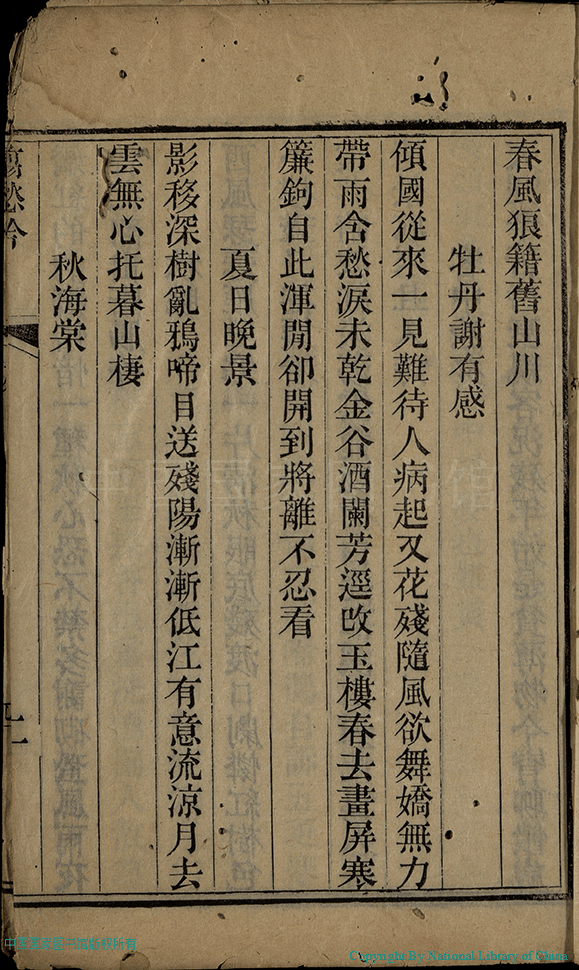 春風狼籍舊山川
牡丹謝有感
傾國從來一見難待人病起又花殘隨風欲舞嬌無力
帶雨含愁淚未乾金谷酒闌芳逕改玉樓春去畫屏寒
簾鉤自此渾閒卻開到將離不忍看
夏日晚景
影移深樹亂鴉啼目送殘陽漸漸低江有意流涼月去
雲無心托暮山棲
秋海棠
Copyright By National Library of China